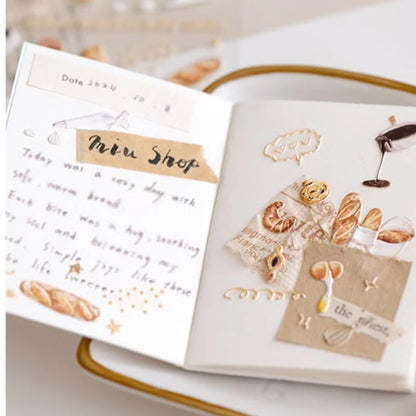 Date 2024.10.8
Miu Shop
Today was a cozy day with
soft, warm bread.
Each bite was a hug, soothing
my soul and
my
Simple joys like these
life sweeter.
the priest,